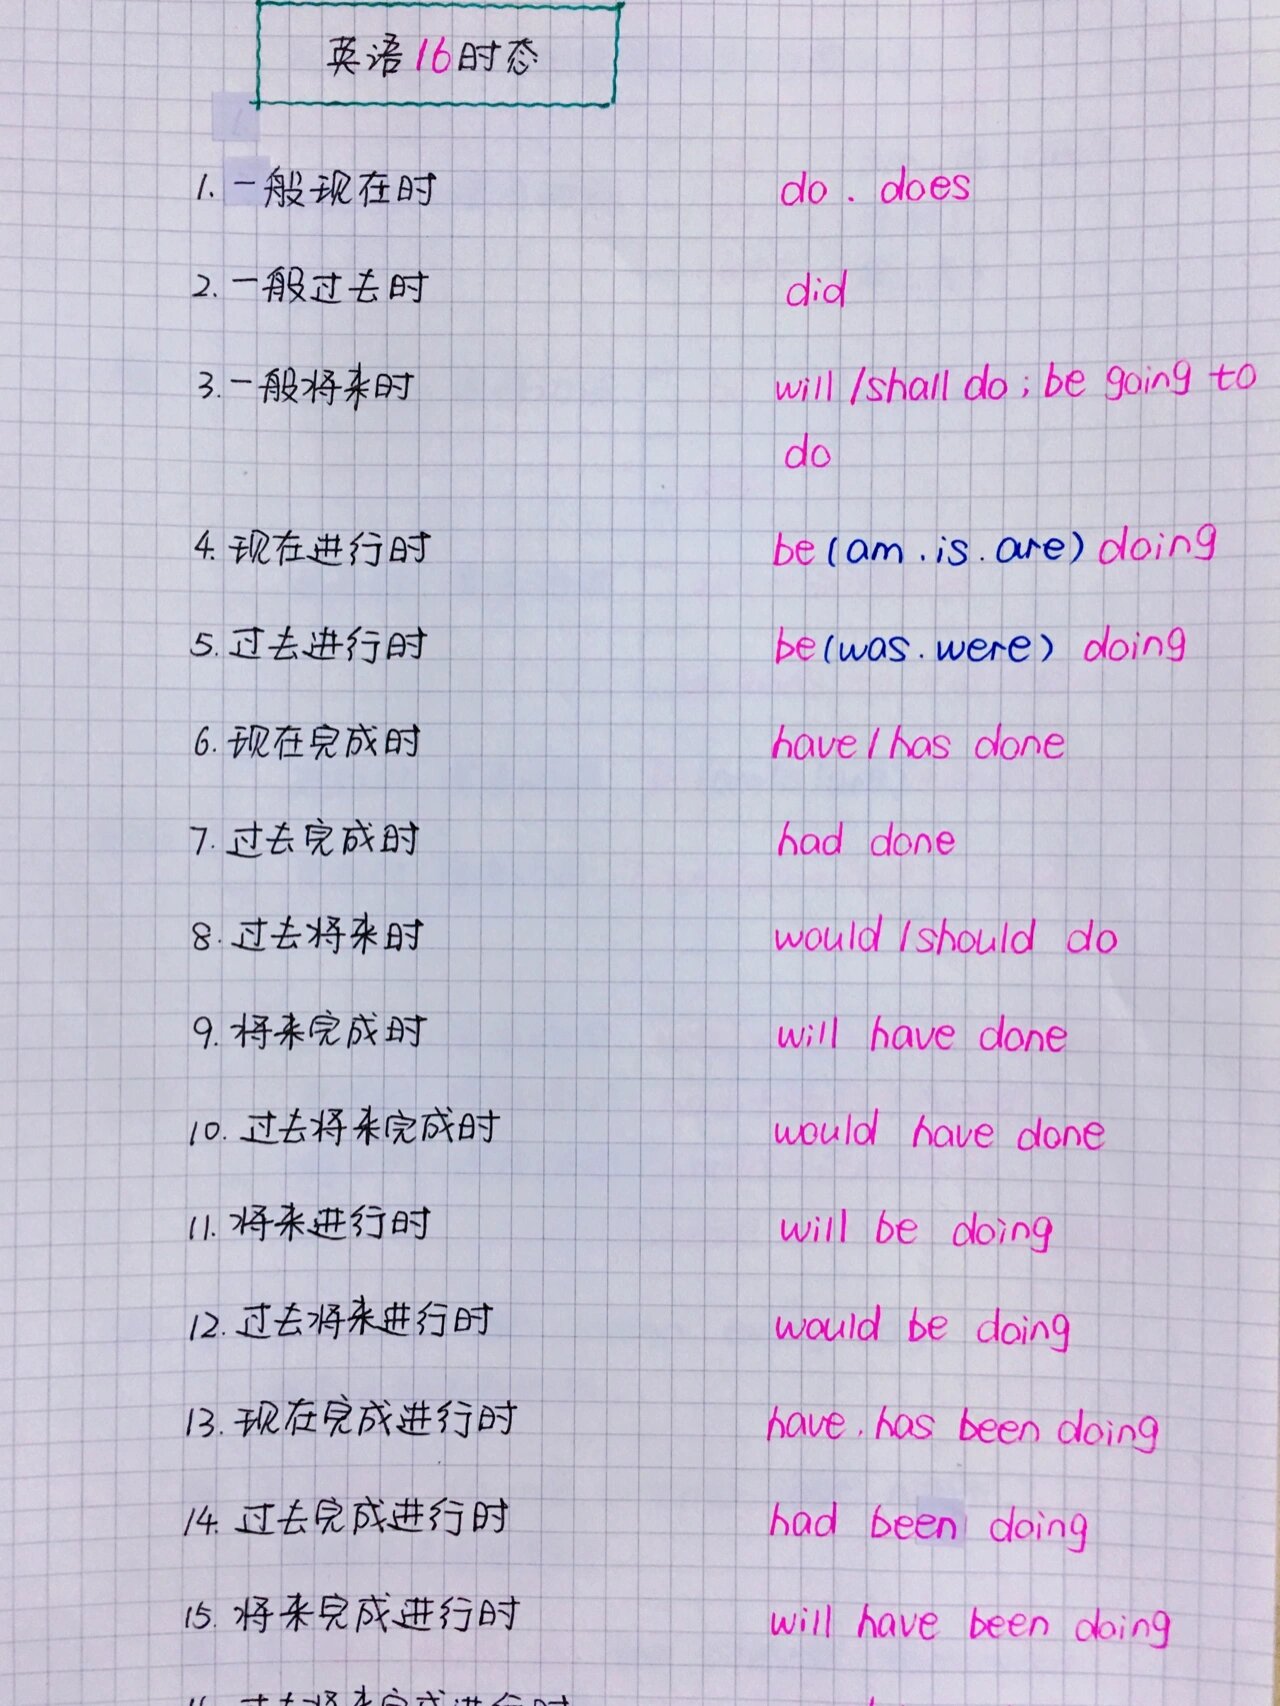 英语16时态
1. 一般现在时 do . does
2. 一般过去时 did
3. 一般将来时 will / shall do ; be going to
do
4. 现在进行时 be (am . is . are) doing
5. 过去进行时 be (was . were) doing
6. 现在完成时 have / has done
7. 过去完成时 had done
8. 过去将来时 would / should do
9. 将来完成时 will have done
10. 过去将来完成时 would have done
11. 将来进行时 will be doing
12. 过去将来进行时 would be doing
13. 现在完成进行时 have . has been doing
14. 过去完成进行时 had been doing
15. 将来完成进行时 will have been doing